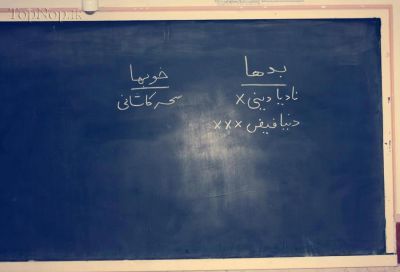 TopNop.ir
بدها
نادیا دینی x
دنیا فیض xxx
خوبها
سحر کاشانی